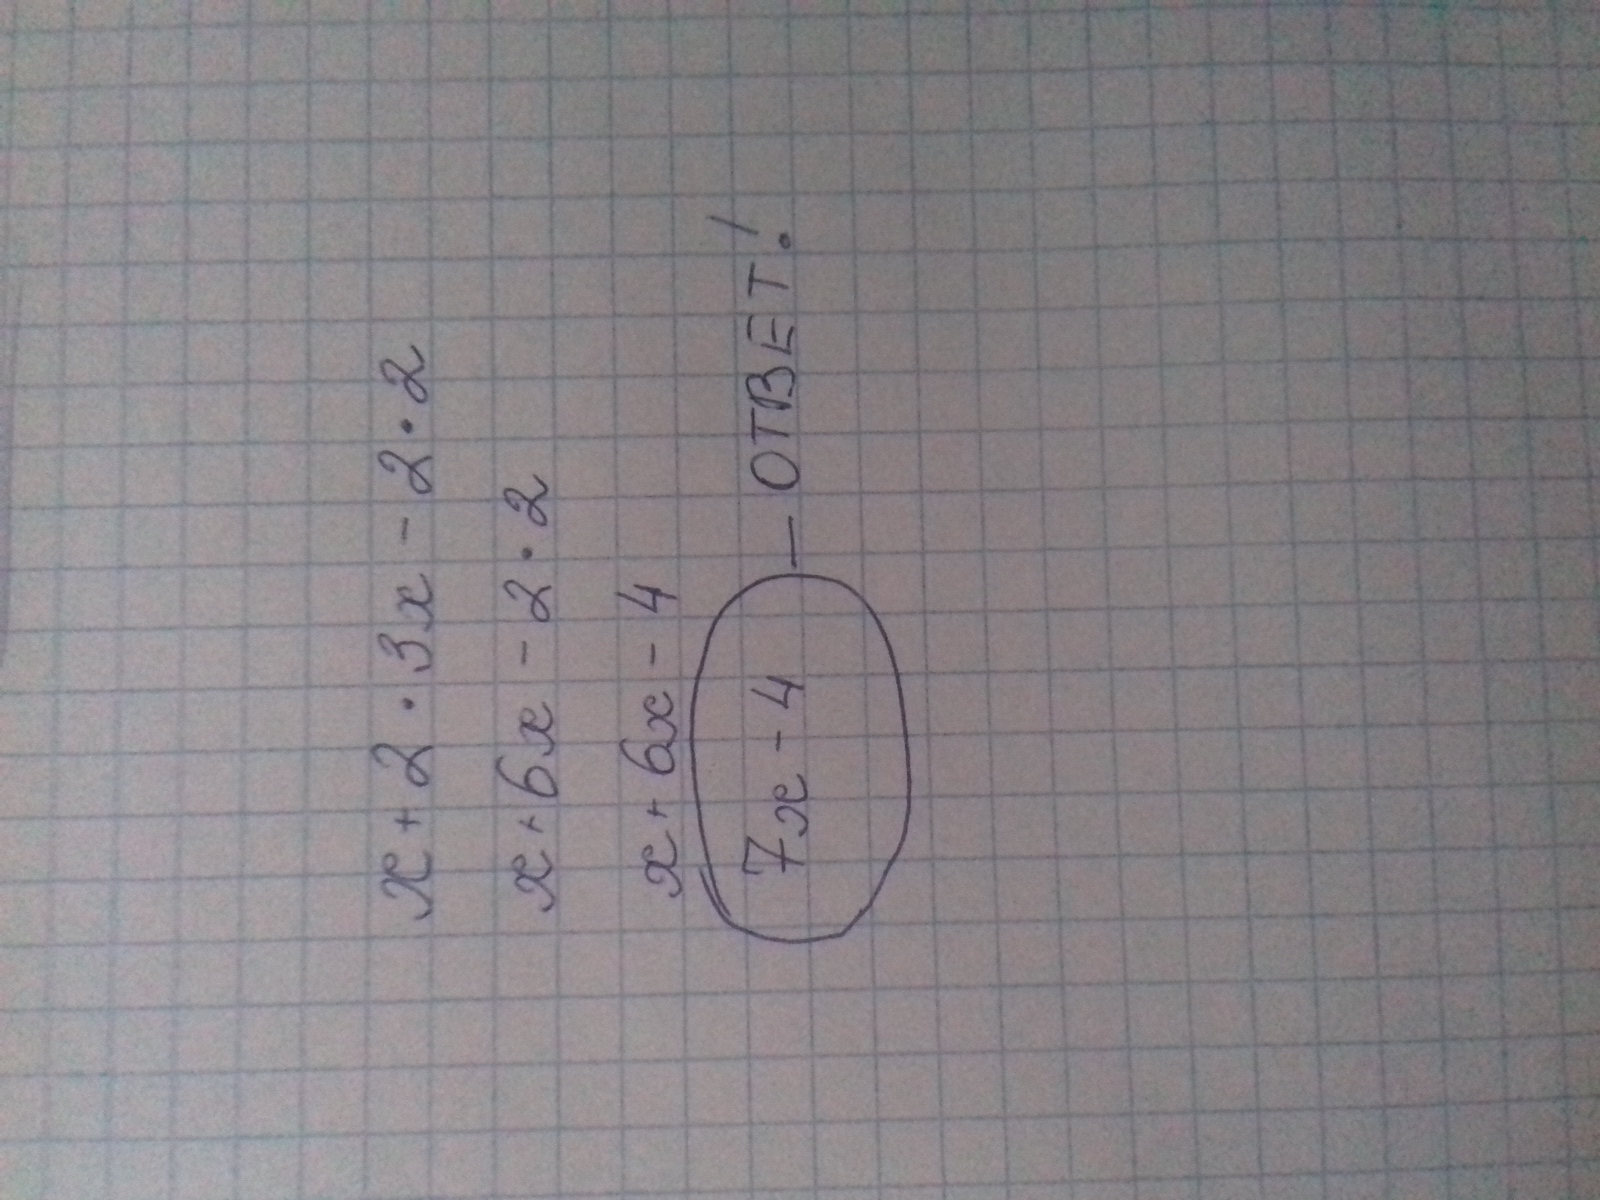 x + 2 · 3x - 2 · 2
x + 6x - 2 · 2
x + 6x - 4
7x - 4 — ОТВЕТ!